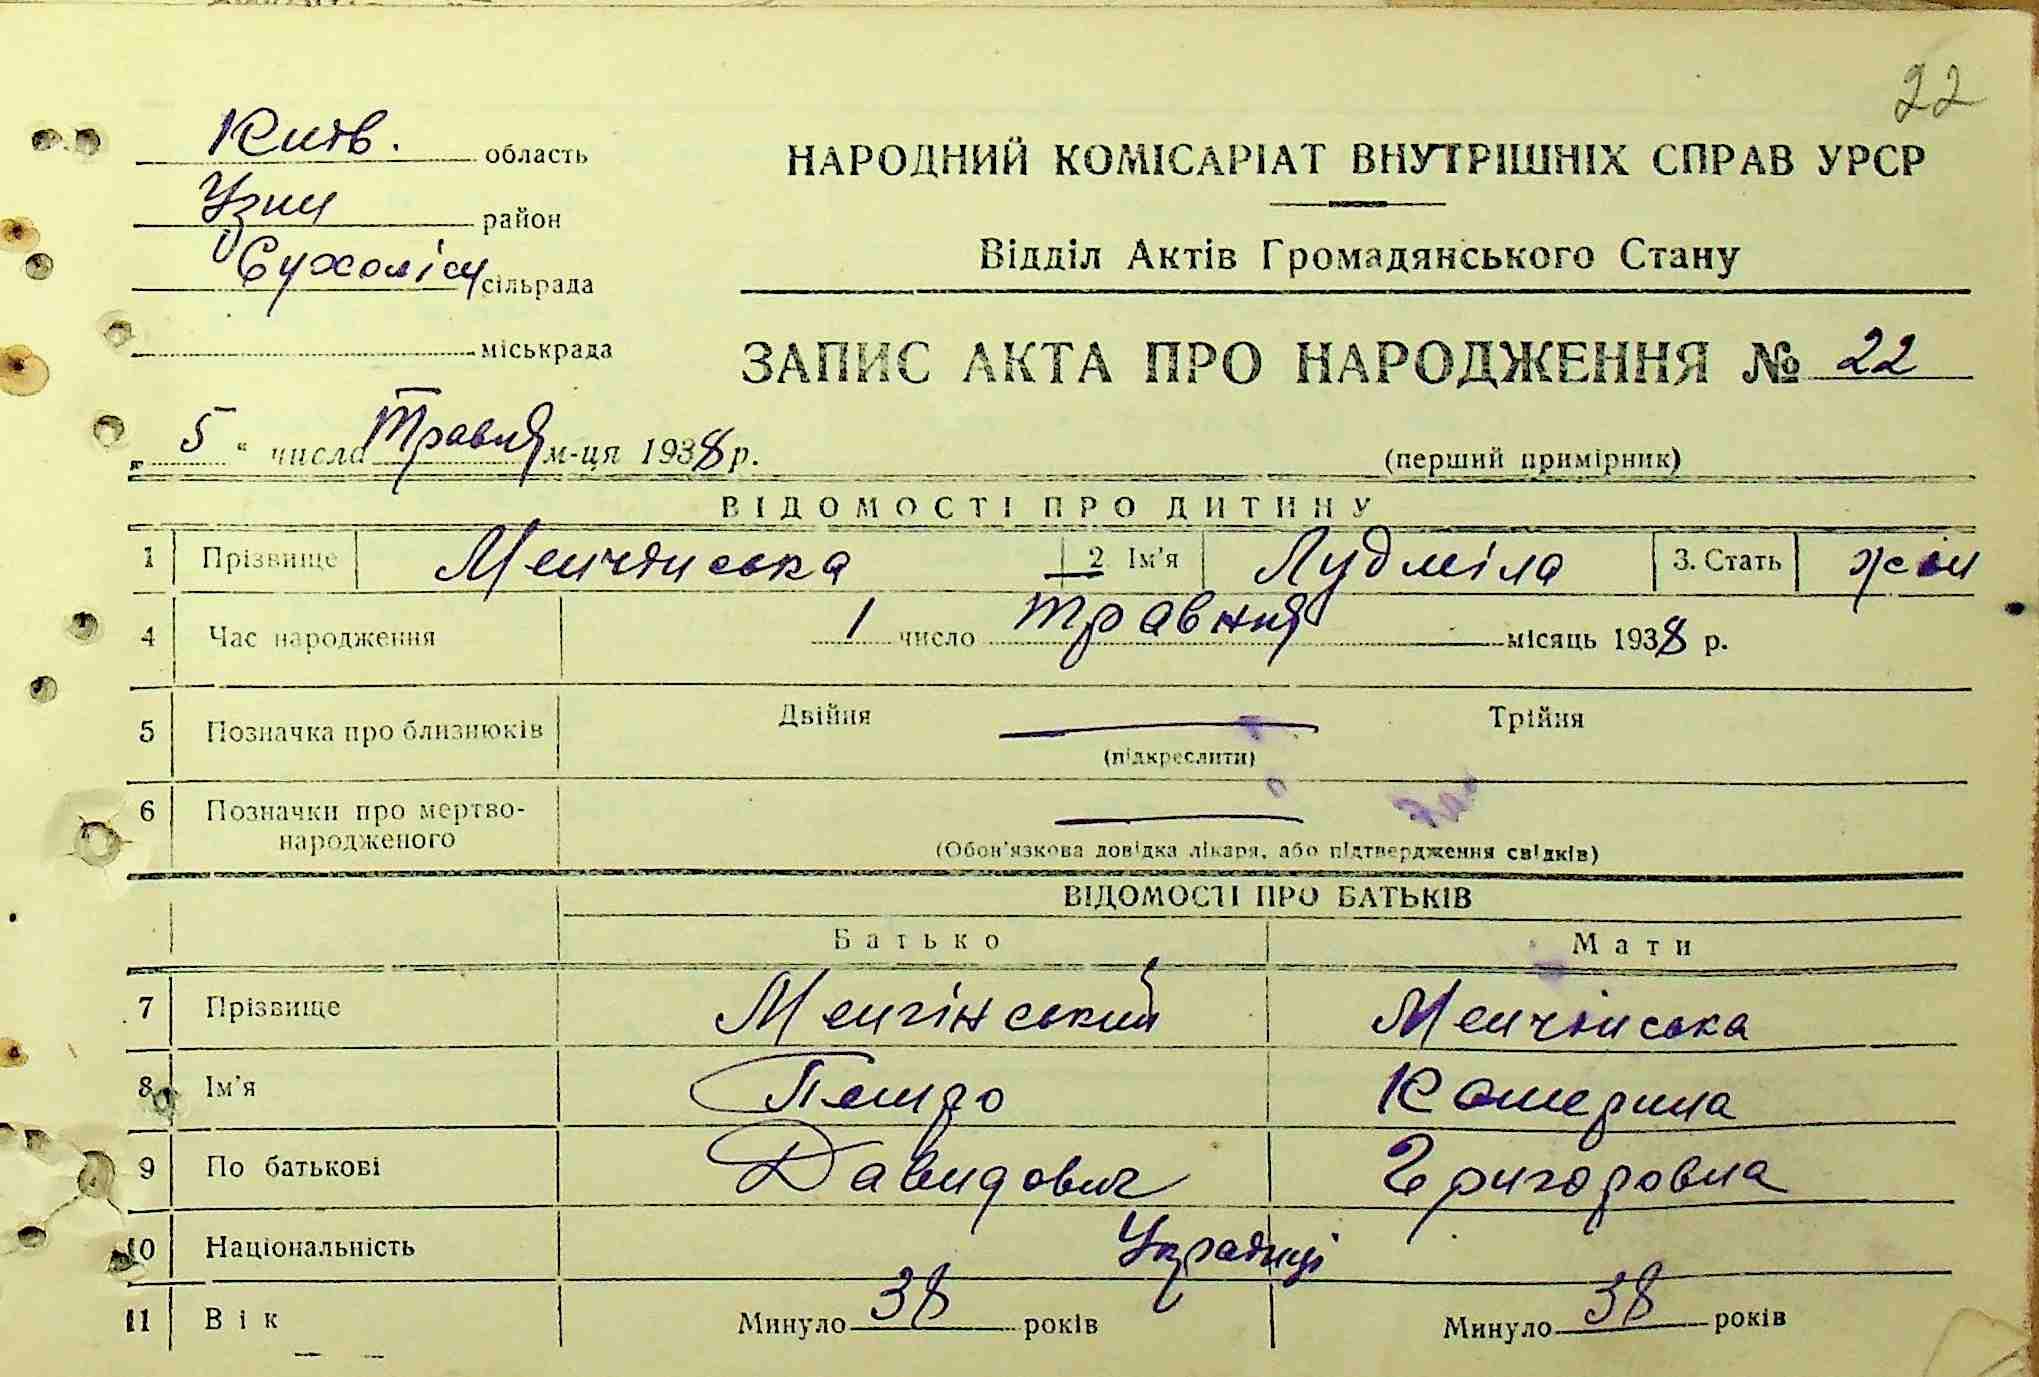 22
Київ. область
НАРОДНИЙ КОМІСАРІАТ ВНУТРІШНІХ СПРАВ УРСР
Узин район
Відділ Актів Громадянського Стану
Сухоліси сільрада
міськрада
ЗАПИС АКТА ПРО НАРОДЖЕННЯ № 22
„ 5 " числа Травня м-ця 1938 р.
(перший примірник)
ВІДОМОСТІ ПРО ДИТИНУ
1 Прізвище Менчінська 2 Ім'я Лудміла 3. Стать жін
4 Час народження 1 число травня місяць 1938 р.
5 Позначка про близнюків Двійня Трійня
(підкреслити)
6 Позначки про мертво-
народженого
(Обов'язкова довідка лікаря, або підтвердження свідків)
ВІДОМОСТІ ПРО БАТЬКІВ
Батько Мати
7 Прізвище Менчінський Менчінська
8 Ім'я Петро Катерина
9 По батькові Давидович Григоровна
10 Національність Українці
11 Вік Минуло 38 років Минуло 38 років